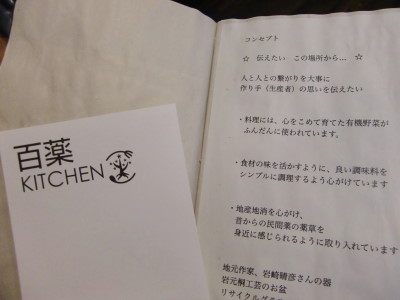 百薬
KITCHEN
コンセプト
☆ 伝えたい この場所から… ☆
人と人との繋がりを大事に
作り手（生産者）の思いを伝えたい
・料理には、心をこめて育てた有機野菜が
ふんだんに使われています。
・食材の味を活かすように、良い調味料を
シンプルに調理するよう心がけています
・地産地消を心がけ、
昔からの民間薬の薬草を
身近に感じられるように取り入れています
地元作家、岩崎晴彦さんの器
岩元桐工芸のお盆
リサイクルグラス